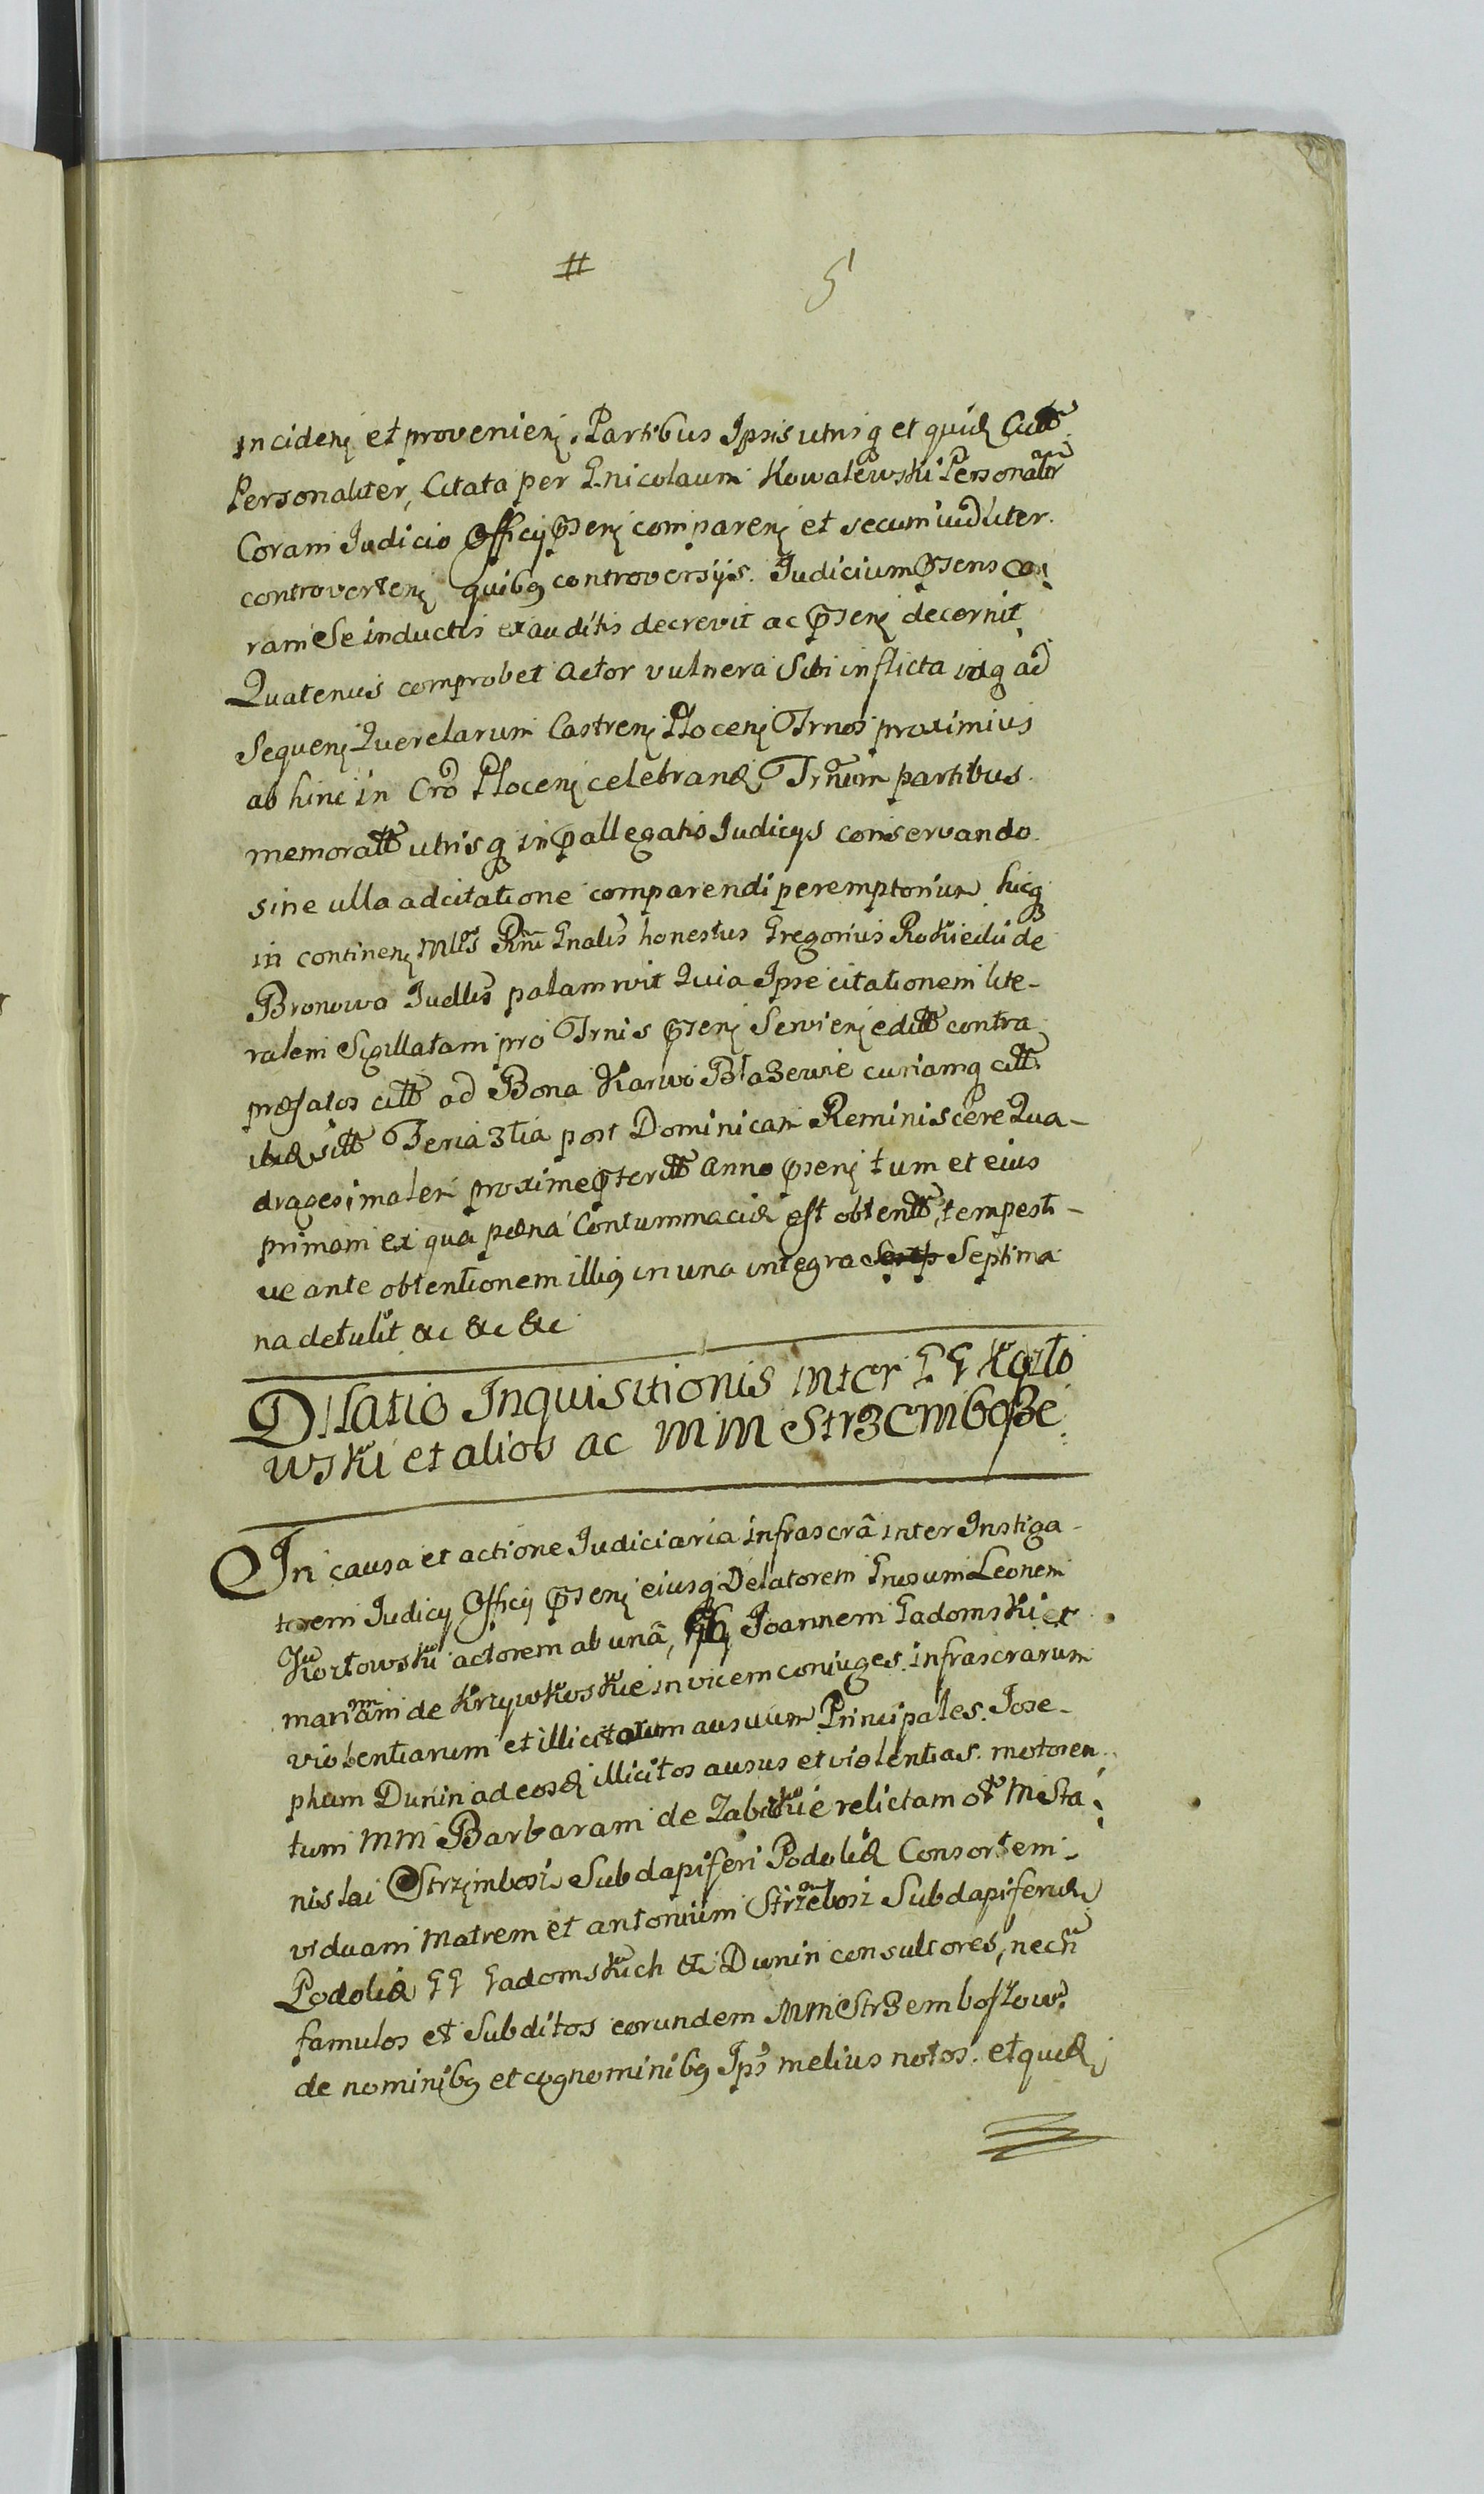 # 5
incidenȩ et provenienȩ. Partibus Ipsis utrisqꝫ et quidȩ Citt̃
Personaliter, Citata per G. nicolaum Kowalewski Personalr̃
Coram Judicio Officij p̃senȩ comparenȩ et secum iudtliter.
controvertenȩ quibꝰ controversijs. Judicium p̃sens co:
ram Se inductis exauditis decrevit ac p̃senȩ decernit
Quatenus comprobet actor vulnera Sibi inflicta idqꝫ ad
Sequenȩ Querelarum Castrenȩ Plocenȩ Trnos proximius
ab hinc in Cro Plocenȩ celebrandȩ, Trñum partibus
memoratt̃ utrisqꝫ in p̃allegatis Judicijs conservando
sine ulla adcitatione comparendi peremptorium, hicqꝫ
in continenȩ Mlis Rñi Gnalis honestus Gregorius Rokicki de
Bronowo Judllis palam rvit Quia Ipse citationem lite-
ralem Sigillatam pro Trnis p̃senȩ Servienȩ editt̃ contra
præfatos citt̃ ad Bona Karwo Błażewie curiamqꝫ citt̃
ibidȩ sitt̃ Feria 3tia post Dominicam Reminiscere Qua-
dragesimalem proxime p̃teritt̃ anno p̃senȩ tum et eius
primam ex qua pæna Contummaciæ est obtentt̃, tempesti-
ve ante obtentionem illiꝰ in una integra Septima
na detulit &c &c &c
Dilatio Inquisitionis inter GG Kozło
wski et alios ac MM Strzembosze
In causa et actione Judiciaria infrascrã inter Instiga-
torem Judicij Officij p̃senȩ eiusqꝫ Delatorem Grusum Leonem
Kozłowski actorem ab unã, GG Joannem Gadomski et
mariãnnam de Krzywkoskie invicem coniuges. infrascrarum
violentiarum et illicitorum ausuum Principales. Jose-
phum Dunin ad eosdȩ illicitos ausus et violentias. motorem
tum MM Barbaram de Zabickie relictam ol. M Sta:
nislai Strzȩmbosz Subdapiferi Podoliæ Consortem
viduam Matrem et antonium Strzembosz Subdapiferidȩ
Podoliæ GG Gadomskich & Dunin consultores, necñ
famulos et Subditos eorundem MM Strzemboszow
de nominibꝰ et cognominibꝰ Ips melius notos. et quidȩ